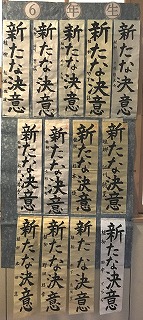 6年生
新たな決意
新たな決意
新たな決意
新たな決意
新たな決意
新たな決意
新たな決意
新たな決意
新たな決意
新たな決意
新たな決意
新たな決意